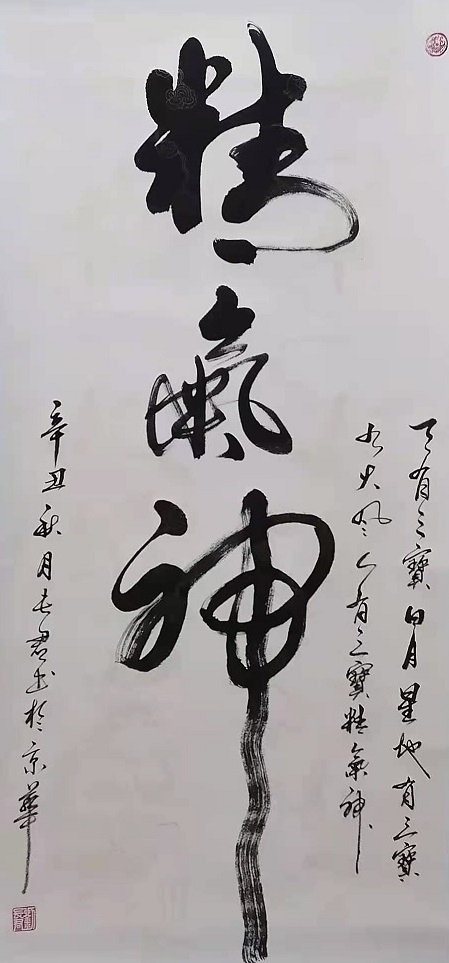 精氣神
天有三寶日月星地有三寶
水火風人有三寶精氣神
辛丑秋月長君书於京華